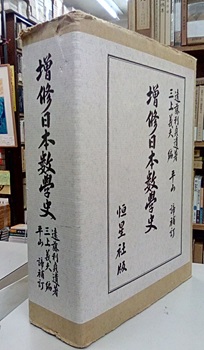 増修日本数學史
遠藤利貞遺著
三上義夫 編
平山 諦補訂
遠藤利貞遺著
三上義夫 編
平山 諦補訂
増修日本数學史
恒星社版